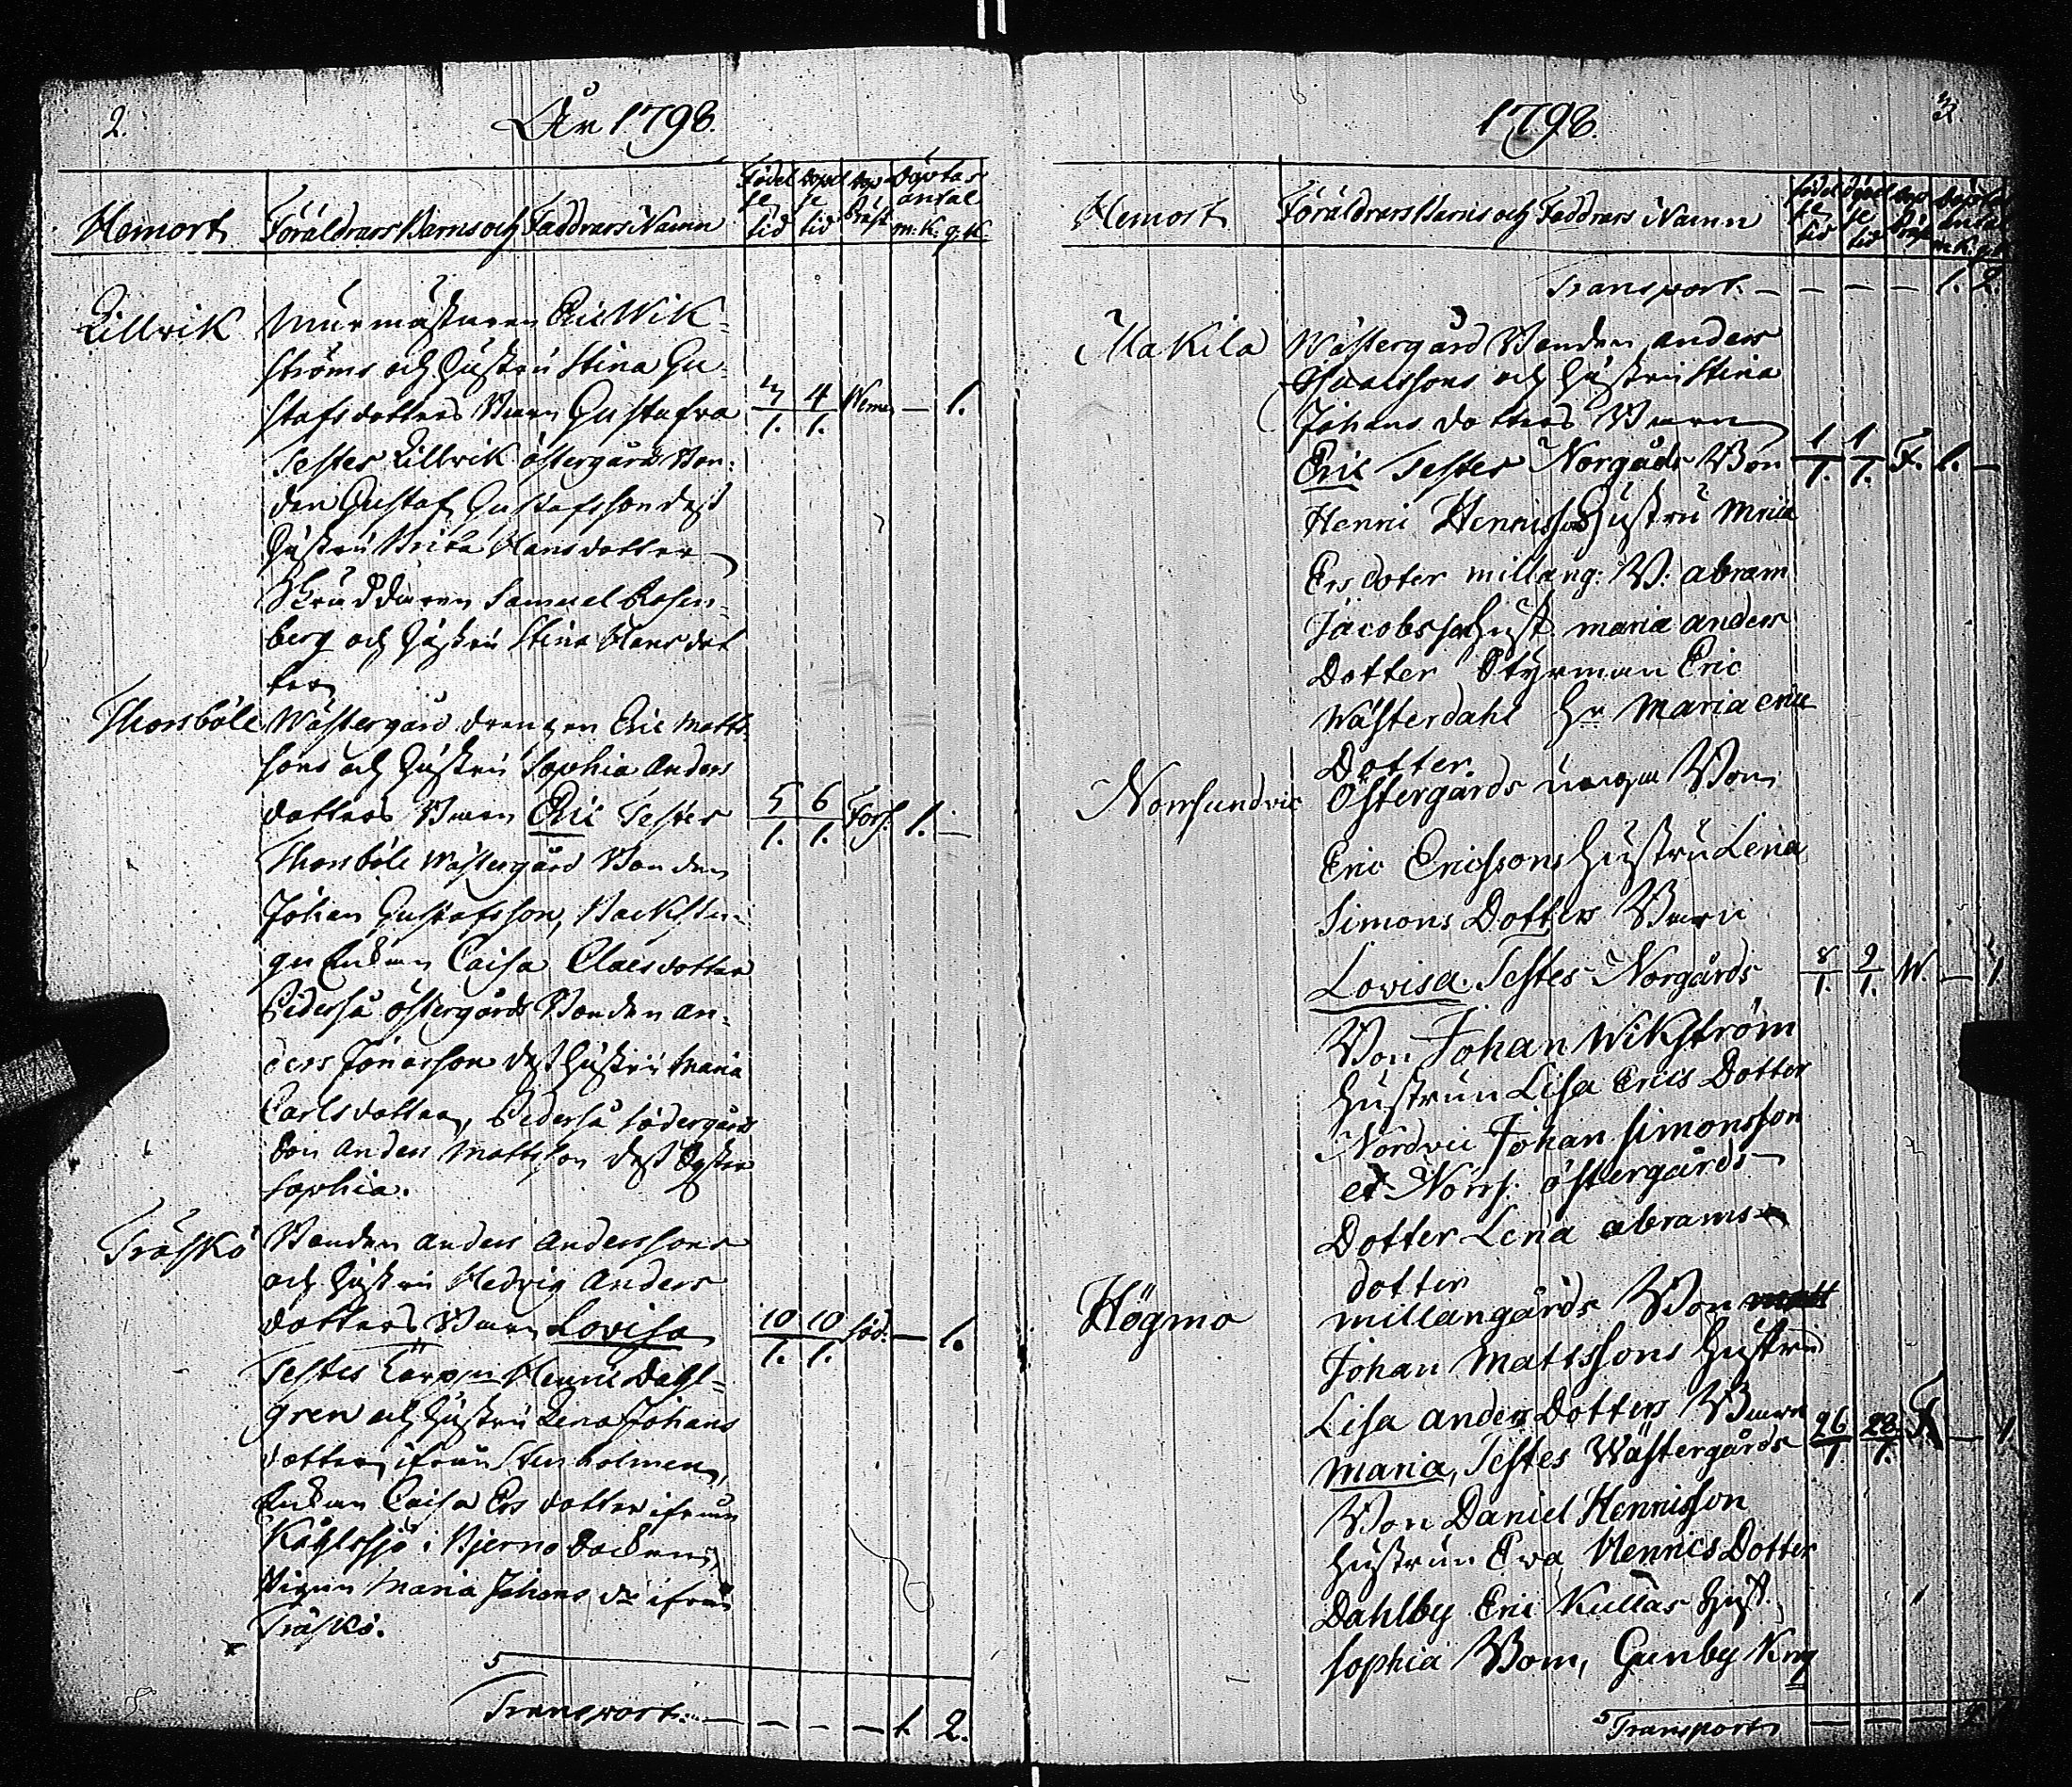 2.
År 1798.
Hemort
Föräldrars Barns och Faddrars Namn
Födel
se
tid
Döpel
se
tid
Döp
Präst
Döptas
antal
m.K. q.K.
Lillvik
Murmästaren Eric Wik-
ströms och Hustru Stina Gu-
stafsdotters Barn Gustafva 3/1. 4/1. Weme — 1.
Testes Lillvik östergårds Bon-
den Gustaf Gustafsson dess
Hustru Brita Hansdotter
Skräddaren Samuel Rosen-
berg och Hustru Stina Hansdot
ter
Thorsböle
Wästergård drengen Eric Matts-
sons och Hustru Sophia Anders
dotters Barn Eric Testes 5/1. 6/1. Fors. 1. —
Thorsböle Wästergård Bonden
Johan Gustafsson, Backstu-
gu Enkan Caisa Claesdotter
Pederså östergårds Bonden An-
ders Jönasson dess Hustru Maria
Carlsdotter, Pederså södergårds
bon Anders Mattsson dess Syster
Sophia.
Träskö
Bonden Anders Anderssons
och Hustru Hedvig Anders
dotters Barn Lovisa 10/1. 10/1. söd. — 1.
Testes Torpn Henric Dahl-
gren och Hustru Lena Johans
dotter ifrån Stenholmen,
Enkan Caisa Ers dotter ifrån
Kåhlssjö i Bjerno Socken,
Pigan Maria Johans dr ifrån
Träskö.
5
Transport — — — — 1. 2.
1798.
3.
Hemort
Föräldrars Barns och Faddrars Namn
Födel
se
tid
Döpel
se
tid
Döp
Präst
Döptas
antal
m.K. q.K.
Transport. — — — — 1. 2.
Makila
Wästergård Bonden Anders
och Hustru Stina
Johans dotters Barn
Eric Testes Norgåds Bon 1/1. 1/1. F. 1. —
Henric Henrissos Hustru Maria
Ers doter millang: B: abram
Jacobsson Hust. maria anders
Dotter Styrman Eric
Wästerdahl Hu Maria Erics
Dotter.
Norrsundvic
Östergårds unga Bon
Eric Ericssons Hustru Lena
Simons Dotters Barn
Lovisa. Testes Norgårds 8/1. 9/1. W. — 1
Bon Johan Wikström
Hustrun Lisa Erics Dotter
Nordvic Johan Simonsson
et Norrs: östergårds
Dotter Lena abrams
dotter
Högmo
millangårds Bon
Johan Mattssons Hustru
Lisa anders Dotters Barn
Maria, Testes Wästergårds 26/1. 28/1. F. — 1
Bon Daniel Henrisson
Hustrun Ewa Henrics Dotter
Dahlby Eric Kullas Hust.
Sophia Bom, Gunby Kng
5
Transport — — — 2